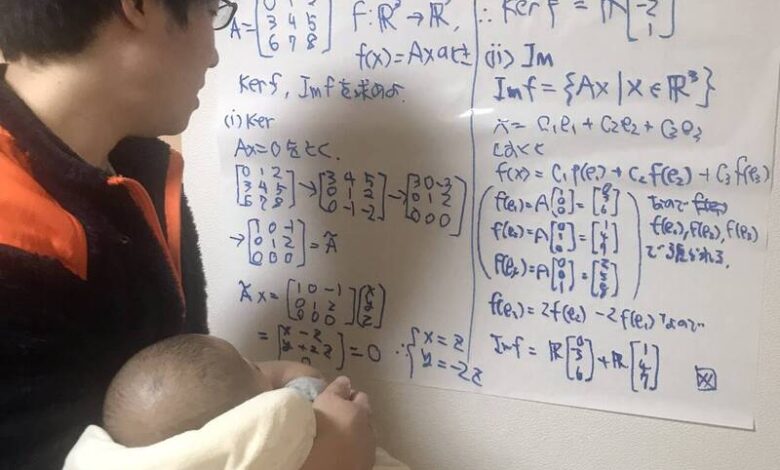 A = [0 1 2
3 4 5
6 7 8]
f: ℝ³ → ℝ³,
f(x) = Ax のとき
Ker f, Im f を求めよ.
(i) Ker
Ax = 0 をとく.
[0 1 2
3 4 5
6 7 8] → [3 4 5
0 1 2
0 -1 -2] → [3 0 -3
0 1 2
0 0 0]
→ [1 0 -1
0 1 2
0 0 0] = Ã
Ãx = [1 0 -1
0 1 2
0 0 0] [x
y
z]
= [x - z
y + 2z
0] = 0 ∴ { x = z
y = -2z
∴ Ker f = ℝ [
-2
1]
(ii) Im
Im f = {Ax | x ∈ ℝ³}
x = C₁e₁ + C₂e₂ + C₃e₃
とおくと
f(x) = C₁f(e₁) + C₂f(e₂) + C₃f(e₃)
f(e₁) = A[1
0
0] = [0
3
6]
f(e₂) = A[0
1
0] = [1
4
7]
f(e₃) = A[0
0
1] = [2
5
8]
なので
f(e₁), f(e₂), f(e₃)
で張られる.
f(e₃) = 2f(e₂) - 2f(e₁) なので
Im f = ℝ[0
3
6] + ℝ[1
4
7]